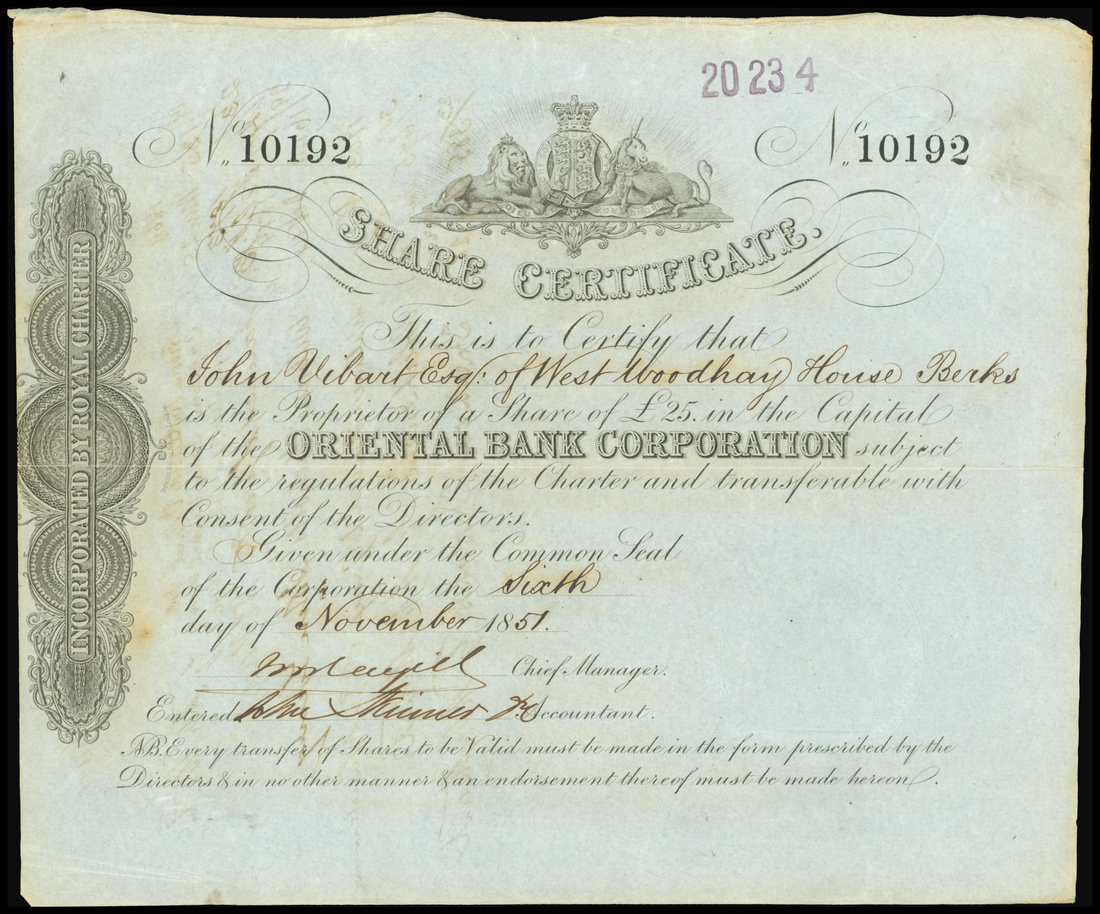 20 23 4
No 10192 No 10192
SHARE CERTIFICATE.
This is to Certify that
John Vibart Esqr: of West Woodhay House Berks
is the Proprietor of a Share of £25. in the Capital
of the ORIENTAL BANK CORPORATION subject
to the regulations of the Charter and transferable with
Consent of the Directors.
Given under the Common Seal
of the Corporation the Sixth
day of November 1851.
Chief Manager.
Entered John Skinner Accountant.
NB. Every transfer of Shares to be Valid must be made in the form prescribed by the
Directors & in no other manner & an endorsement thereof must be made hereon.
INCORPORATED BY ROYAL CHARTER